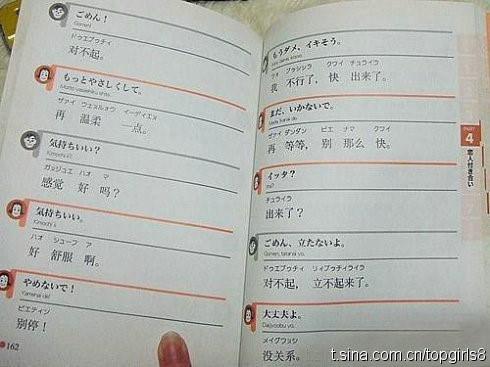 ごめん！
Gomen!
ドゥエブゥチィ
对不起。
もっとやさしくして。
Motto yasashiku shite.
ザァイ ウェヌルォウ イーディエヌ
再 温柔 一点。
気持ちいい？
Kimochi ii?
ガッジュエ ハオ マ
感觉 好 吗？
気持ちいい。
Kimochi ii.
ハオ シューフ ア
好 舒服 啊。
やめないで！
Yamenai de!
ビエティン
别停！
162
もうダメ、イキそう。
ウオ ブゥシンラ クワイ チュライラ
我 不行了，快 出来了。
まだ、いかないで。
Mada, ikanai de.
ザァイ ダンダン ビエ ナマ クワイ
再 等等，别 那么 快。
イッタ？
Itta?
チュライラ
出来了？
ごめん、立たないよ。
Gomen, tatanai yo.
ドゥエブゥチィ リィブゥチィライラ
对不起， 立不起来了。
大丈夫よ。
Daijyoobu yo.
メイグワンシ
没关系。
PART
4
恋人付き合い
t.sina.com.cn/topgirls8